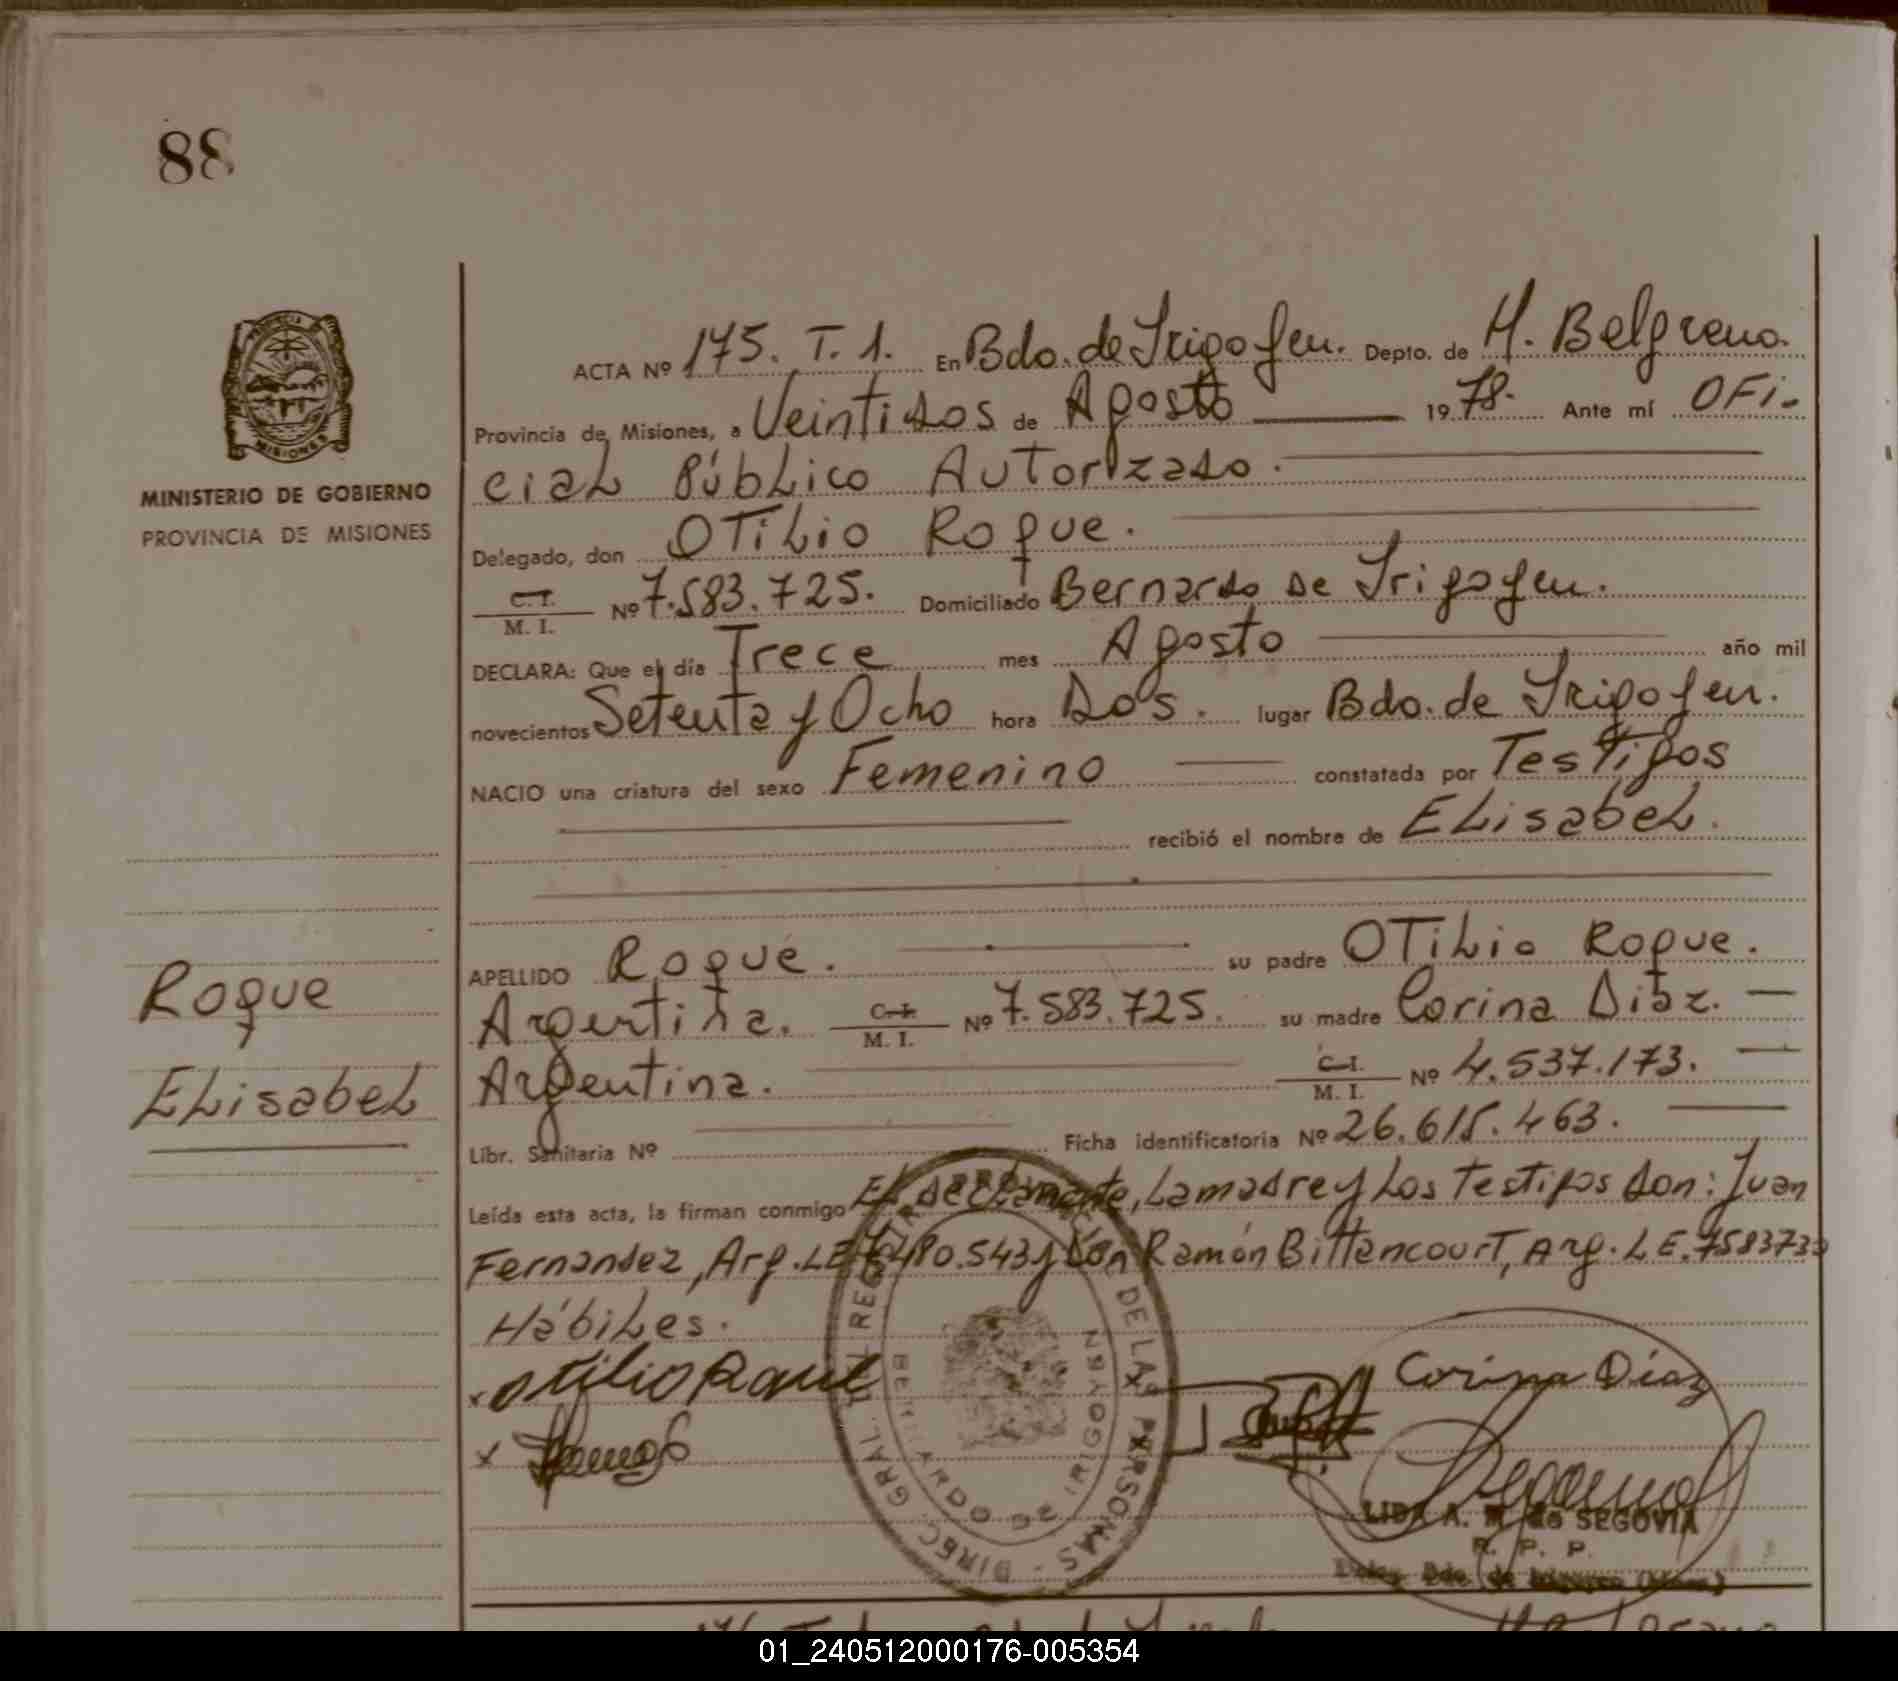 88
PROVINCIA
MISIONES
MINISTERIO DE GOBIERNO
PROVINCIA DE MISIONES
ACTA Nº 175. T. 1. En Bdo. de Irigoyen. Depto. de M. Belgrano.
Provincia de Misiones, a Veintidos de Agosto 1978. Ante mí OFi-
ciaL PúbLico Autorizado.
Delegado, don OTiLio Roque.
C. I. M. I. Nº 7.583.725. Domiciliado Bernardo De Irigoyen.
DECLARA: Que el día Trece mes Agosto año mil
novecientos Setenta y Ocho hora Dos. lugar Bdo. de Irigoyen.
NACIO una criatura del sexo Femenino constatada por Testigos
recibió el nombre de ELisabeL.
APELLIDO Roque. su padre OTiLio Roque.
Argentina. C. I. M. I. Nº 7.583.725. su madre Corina Diaz.
Argentina. C. I. M. I. Nº 4.537.173.
Libr. Sanitaria Nº Ficha identificatoria Nº 26.615.463.
Leída esta acta, la firman conmigo EL decLarante, La madre y Los Testigos don: Juan
Fernandez, Arg. LE 480.543 y don Ramón Bittencourt, Arg. L.E. 758373
HábiLes.
Roque
ELisabeL
x Otilio Roque
Corina Diaz
x
DIREC. GRAL. DEL REGISTRO PROVINCIAL DE LAS PERSONAS
BERNARDO DE IRIGOYEN
LIDA A. M. de SEGOVIA
R. P. P.
01_240512000176-005354